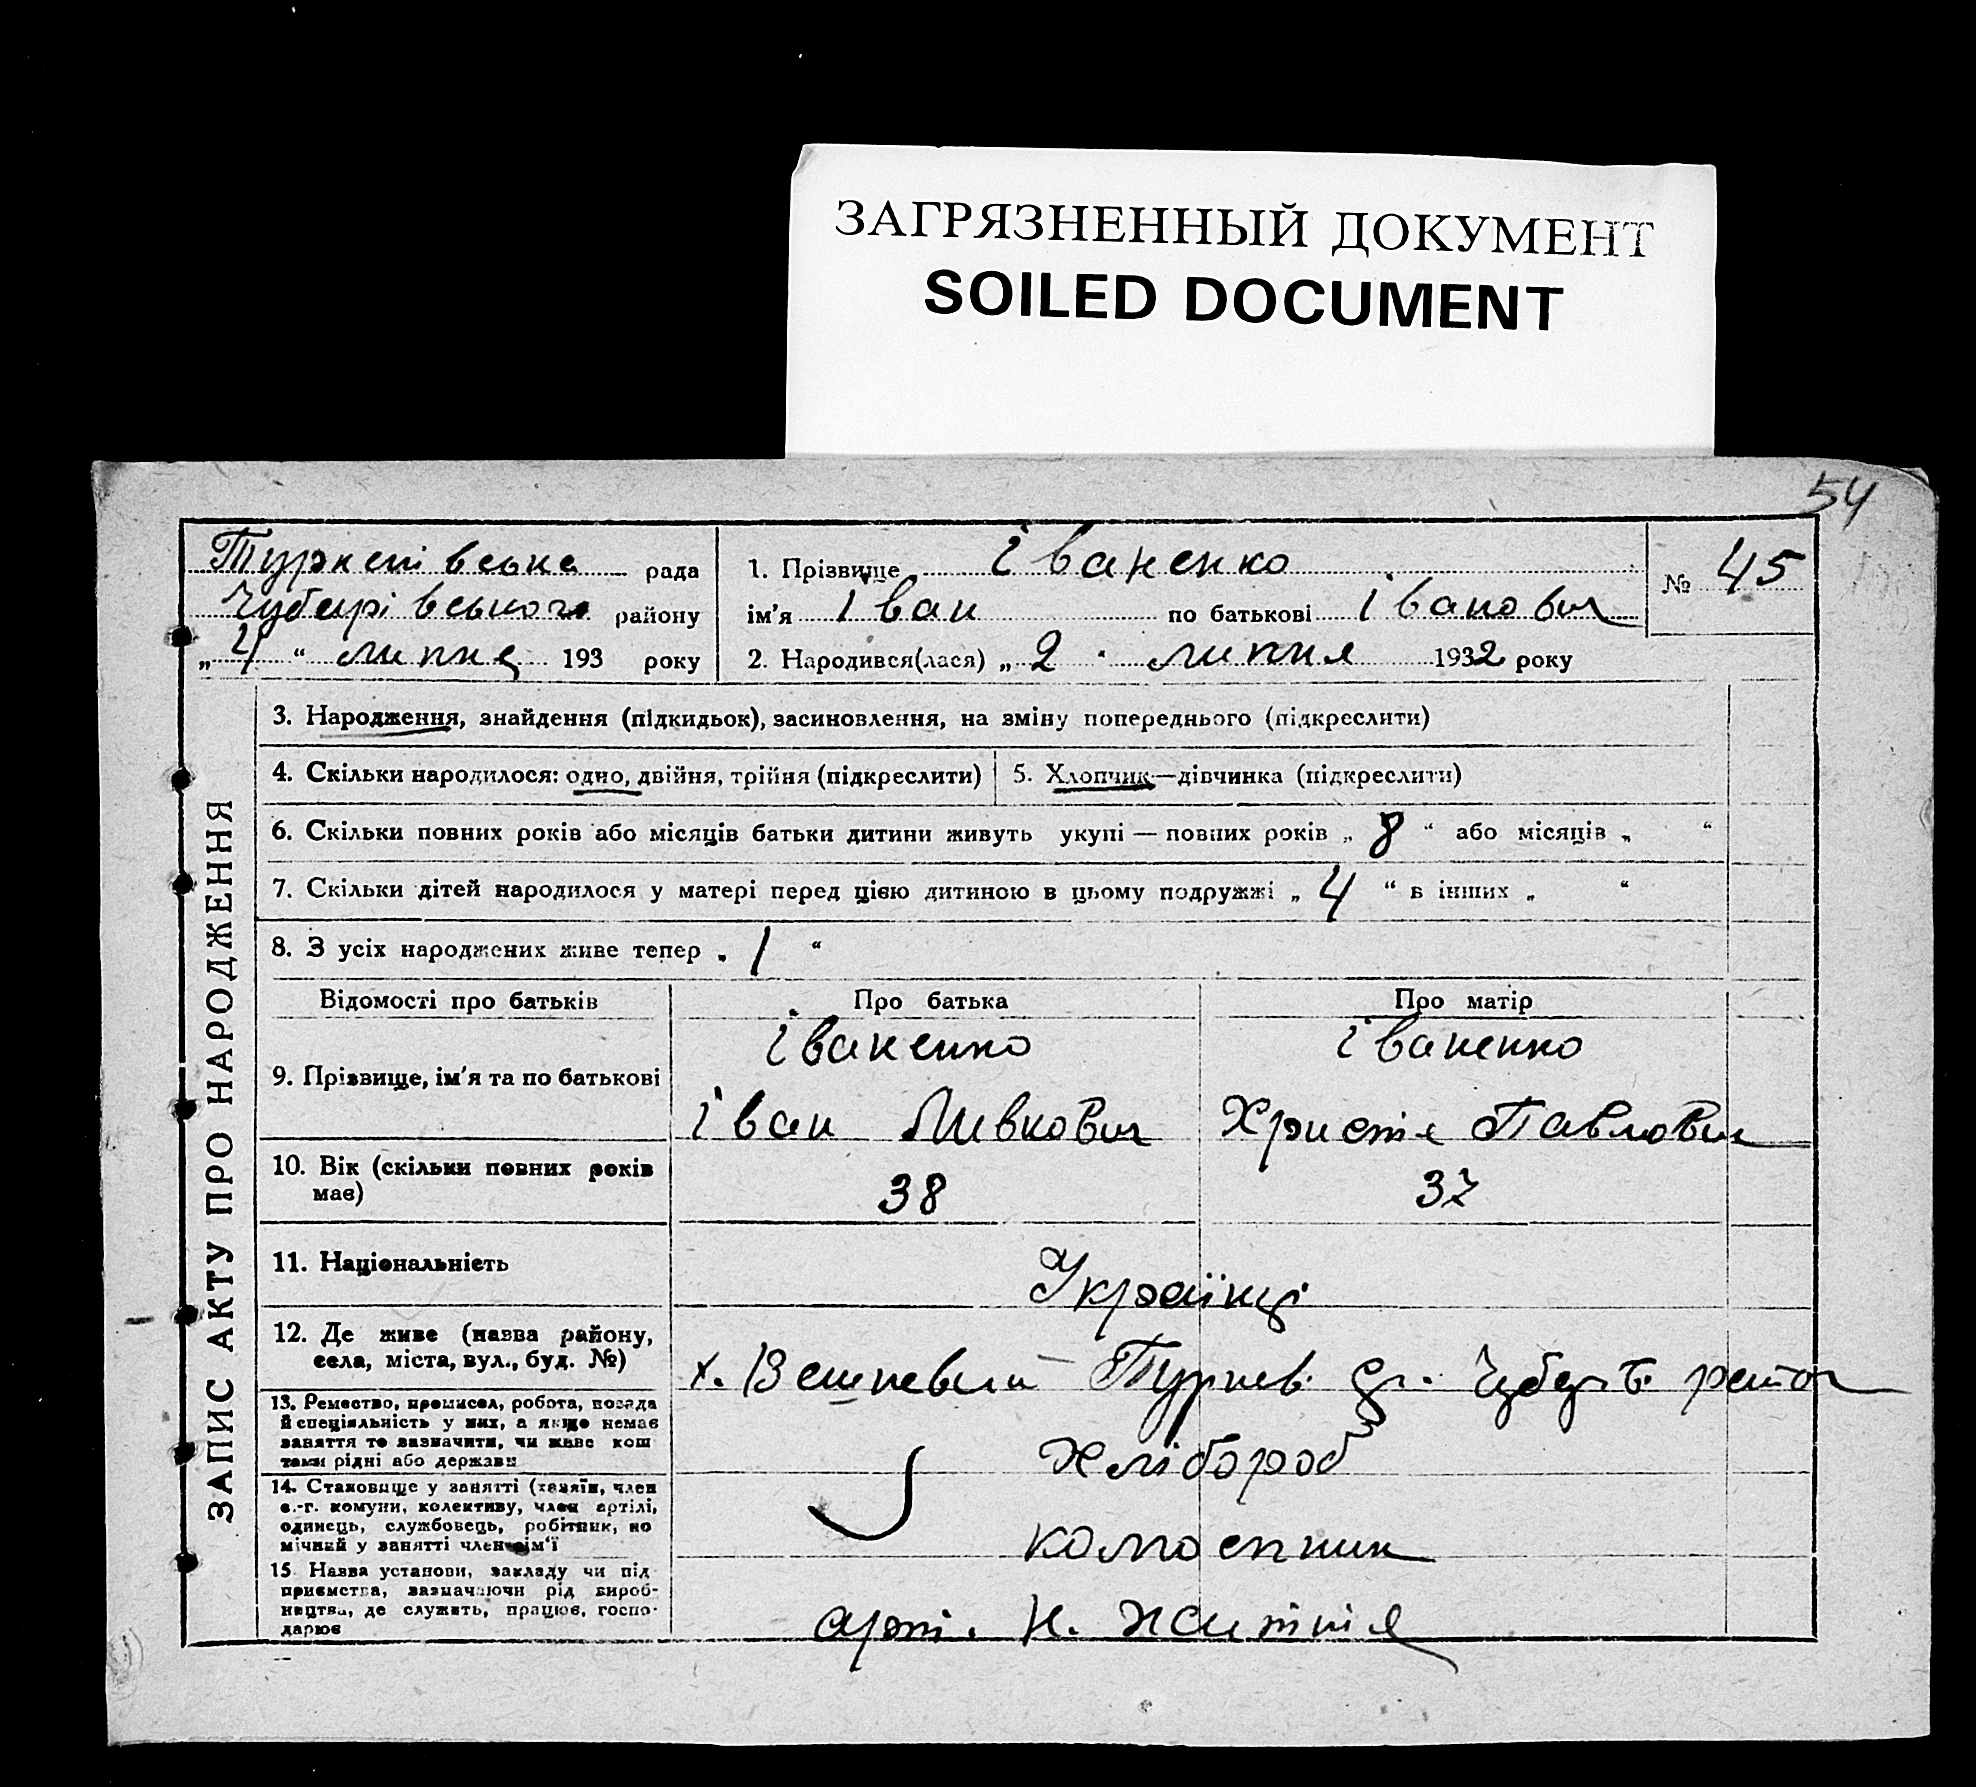 ЗАГРЯЗНЕННЫЙ ДОКУМЕНТ
SOILED DOCUMENT
54
рада
району
„ 4 “ липня 193 року
1. Прізвище Іваненко
ім'я Іван по батькові Іванович
2. Народився(лася) „ 2 " липня 1932 року
№ 45
ЗАПИС АКТУ ПРО НАРОДЖЕННЯ
3. Народження, знайдення (підкидьок), засиновлення, на зміну попереднього (підкреслити)
4. Скільки народилося: одно, двійня, трійня (підкреслити)
5. Хлопчик—дівчинка (підкреслити)
6. Скільки повних років або місяців батьки дитини живуть укупі — повних років „ 8 “ або місяців „ “
7. Скільки дітей народилося у матері перед цією дитиною в цьому подружжі „ 4 “ в інших „ “
8. З усіх народжених живе тепер „ 1 “
Відомості про батьків Про батька Про матір
9. Прізвище, ім'я та по батькові
Іваненко Іваненко
Іван Христя Павлович
10. Вік (скільки повних років
має)
38 37
11. Національність
Українці
12. Де живе (назва району,
села, міста, вул., буд. №)
х.
13. Ремество, промисел, робота, посада
й спеціяльність у них, а якщо немає
заняття то зазначити, чи живе кош
тами рідні або держави
Хлібороб
14. Становище у занятті (хазяїн, член
с.-г. комуни, колективу, член артілі,
одинець, службовець, робітник, по
мічний у занятті член сім'ї
15. Назва установи, закладу чи під
приємства, зазначаючи рід вироб-
ництва, де служить, працює, госпо-
дарює
арт. Н. Життя